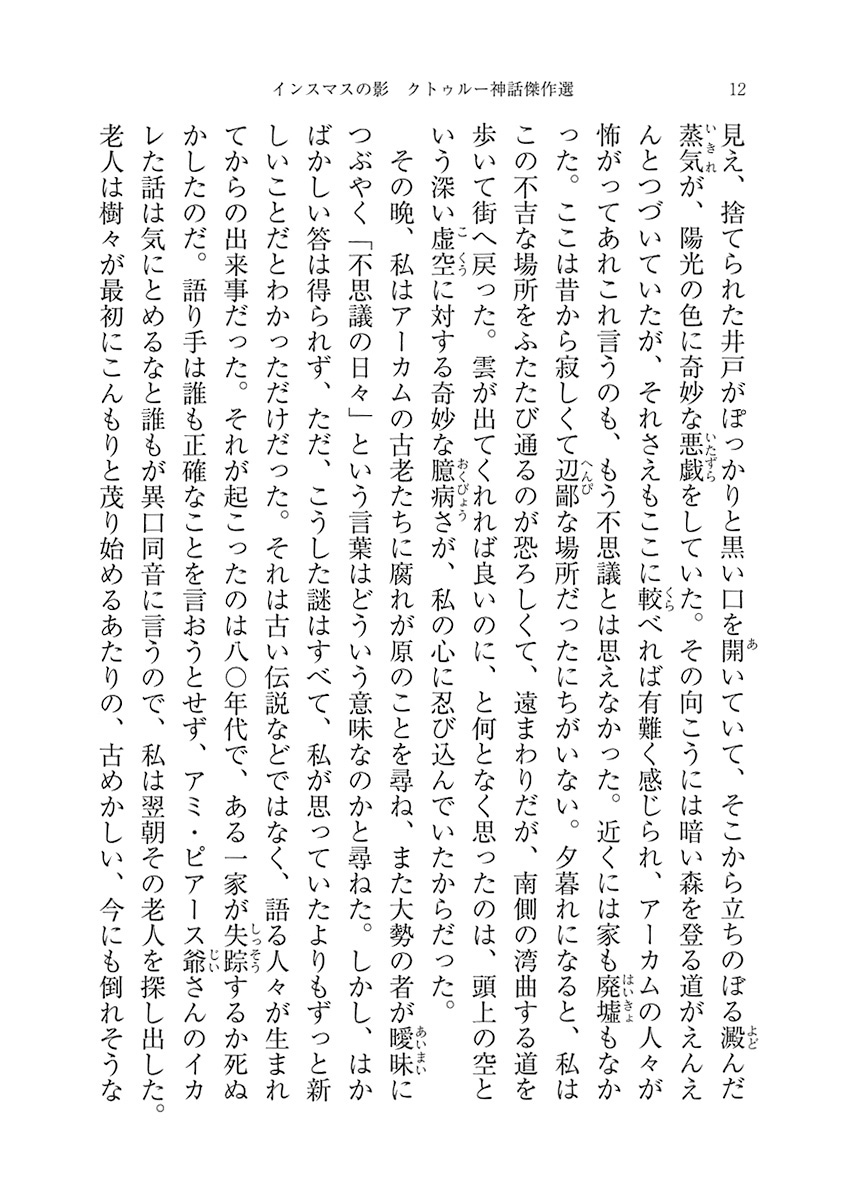 インスマスの影　クトゥルー神話傑作選
12
見え、捨てられた井戸がぽっかりと黒い口を開いていて、そこから立ちのぼる澱んだ
蒸気が、陽光の色に奇妙な悪戯をしていた。その向こうには暗い森を登る道がえんえ
んとつづいていたが、それさえもここに較べれば有難く感じられ、アーカムの人々が
怖がってあれこれ言うのも、もう不思議とは思えなかった。近くには家も廃墟もなか
った。ここは昔から寂しくて辺鄙な場所だったにちがいない。夕暮れになると、私は
この不吉な場所をふたたび通るのが恐ろしくて、遠まわりだが、南側の湾曲する道を
歩いて街へ戻った。雲が出てくれれば良いのに、と何となく思ったのは、頭上の空と
いう深い虚空に対する奇妙な臆病さが、私の心に忍び込んでいたからだった。
　その晩、私はアーカムの古老たちに腐れが原のことを尋ね、また大勢の者が曖昧に
つぶやく「不思議の日々」という言葉はどういう意味なのかと尋ねた。しかし、はか
ばかしい答は得られず、ただ、こうした謎はすべて、私が思っていたよりもずっと新
しいことだとわかっただけだった。それは古い伝説などではなく、語る人々が生まれ
てからの出来事だった。それが起こったのは八〇年代で、ある一家が失踪するか死ぬ
かしたのだ。語り手は誰も正確なことを言おうとせず、アミ・ピアース爺さんのイカ
レた話は気にとめるなと誰もが異口同音に言うので、私は翌朝その老人を探し出した。
老人は樹々が最初にこんもりと茂り始めるあたりの、古めかしい、今にも倒れそうな